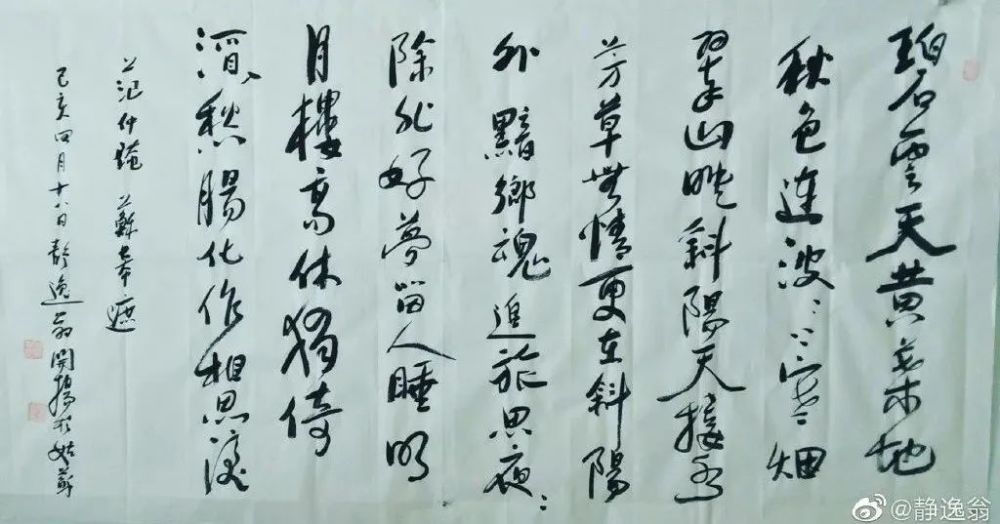 碧雲天黄葉地
秋色連波〻上寒烟
翠山映斜陽天接水
芳草無情更在斜陽
外黯鄉魂追旅思夜〻
除非好夢留人睡明
月樓高休獨倚
酒入愁腸化作相思淚
范仲淹 蘇幕遮
己亥四月十八日静逸翁於姑蘇
@静逸翁